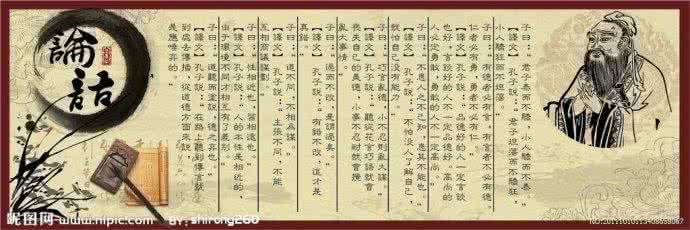 子曰：“君子泰而不驕，小人驕而不泰。”
【譯文】孔子說：“君子坦蕩而不驕狂，
小人驕狂而不坦蕩。”
子曰：“有德者必有言，有言者不必有德。
仁者必有勇，勇者不必有仁。”
【譯文】孔子說：“品德好的人一定言談
也好，言談好的人不一定品德好。高尚的
人必定勇敢，勇敢的人不一定高尚。”
子曰：“不患人之不己知，患其不能也。”
【譯文】孔子說：“不怕沒人了解自己，
就怕自己沒有能力。”
子曰：“巧言亂德，小不忍則亂大謀。”
【譯文】孔子說：“聽從花言巧語就會
喪失自己的美德，小事不忍耐就會攪
亂大事情。”
子曰：“過而不改，是謂過矣。”
【譯文】孔子說：“有錯不改，這才是
真錯。”
子曰：“道不同，不相為謀。”
【譯文】孔子說：“主張不同，不能
互相商議謀劃。”
子曰：“性相近也，習相遠也。”
【譯文】孔子說：“人的本性是相近的，
由于環境不同才相互有了差別。”
子曰：“道聽而塗說，德之棄也。”
【譯文】孔子說：“在路上聽到傳言就
到處去傳播，從道德方面來說，
是應唾棄的。”
論語
昵图网
www.nipic.com
BY: shirong260